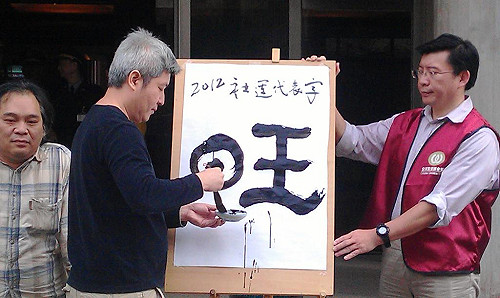 2012社運代表字
旺